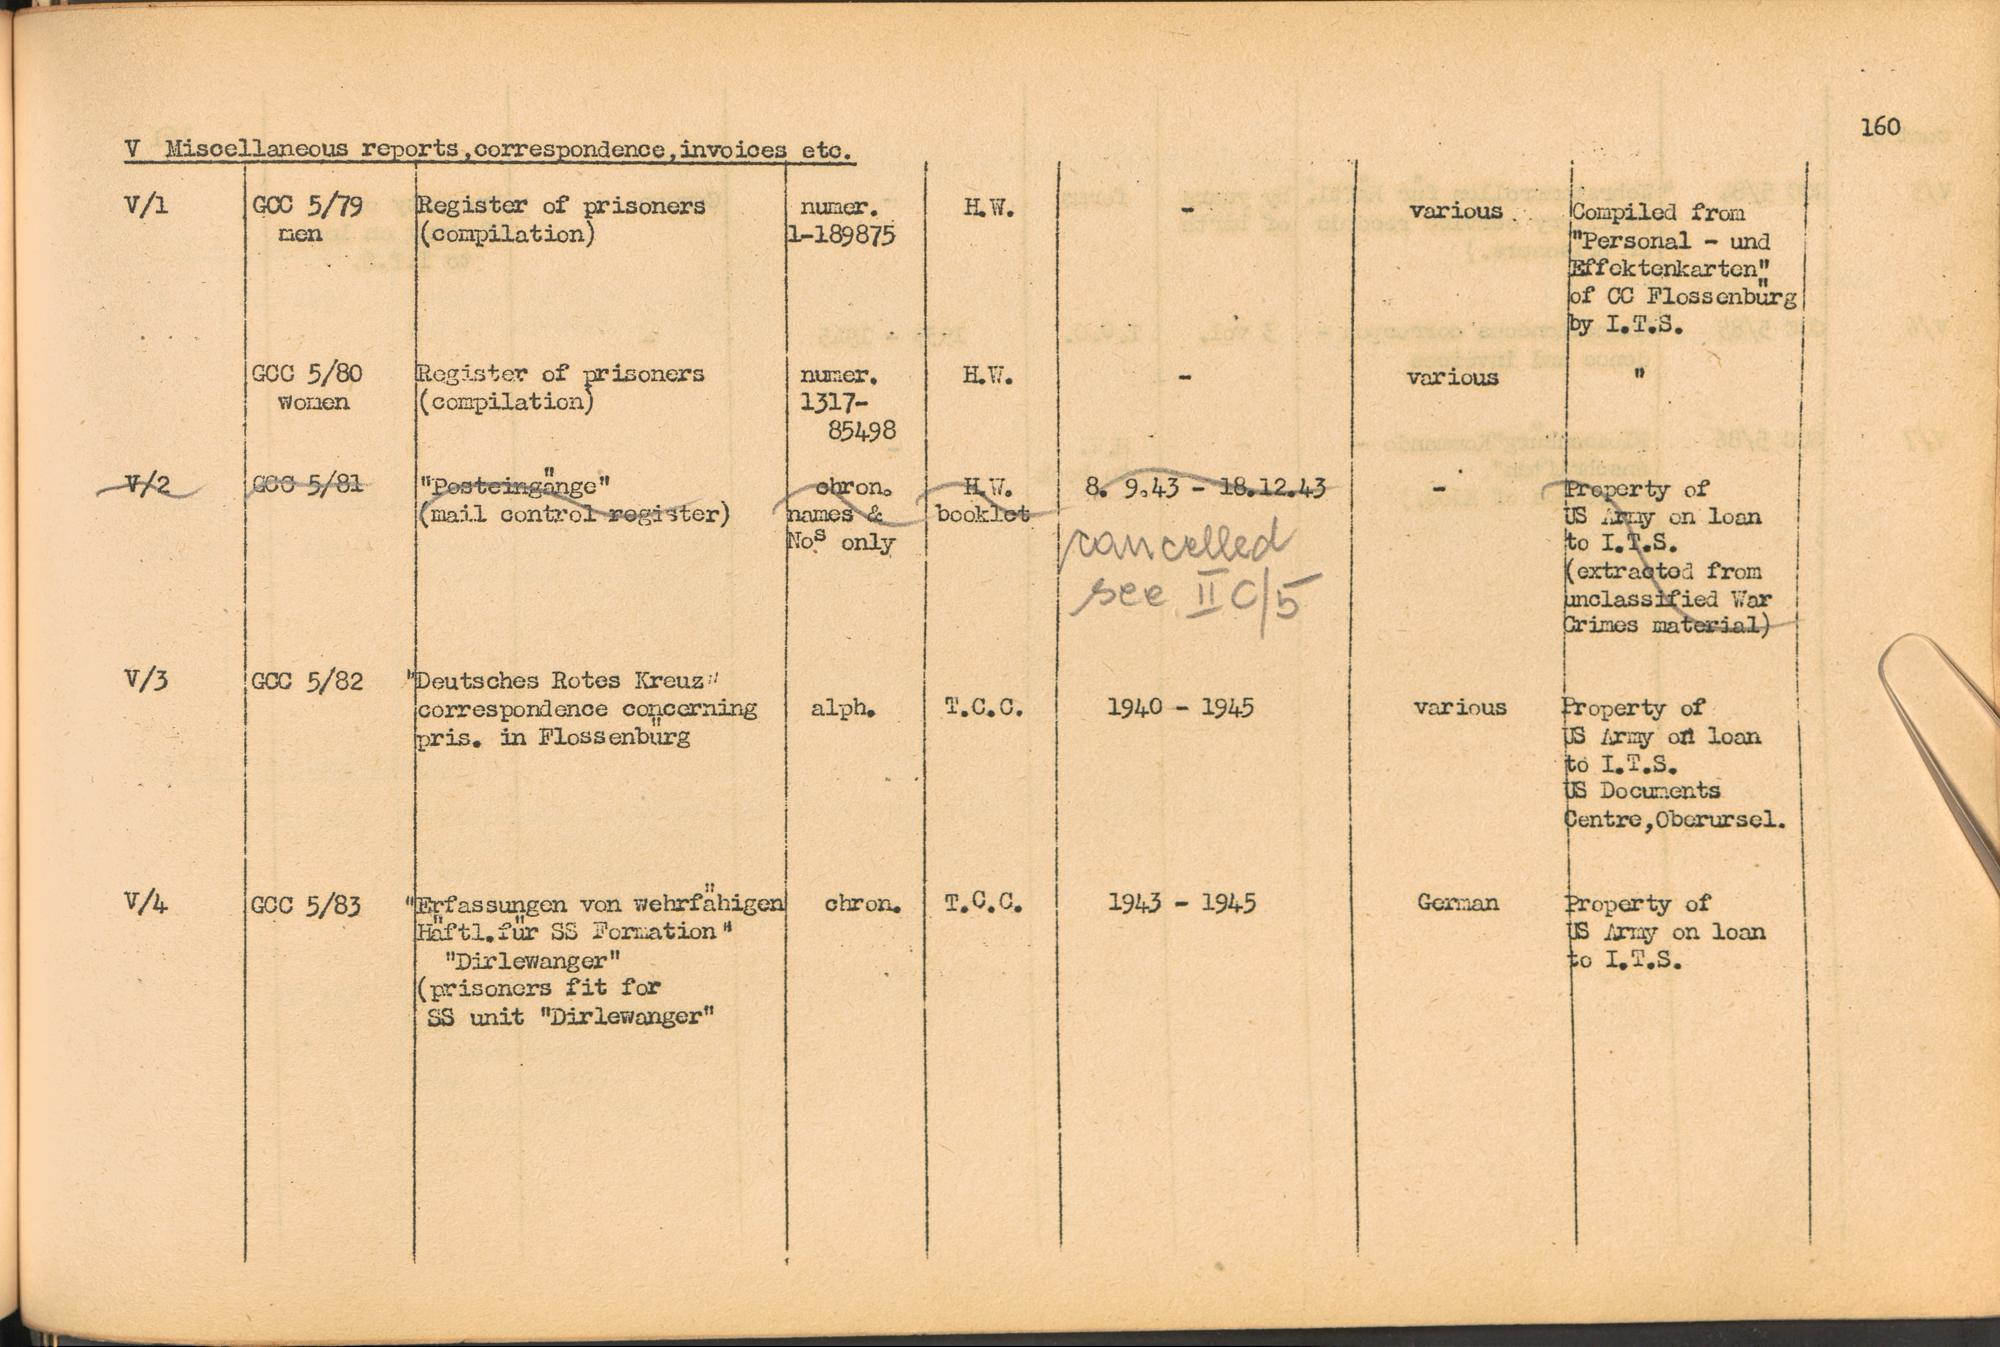 160
V Miscellaneous reports,correspondence,invoices etc.
V/1 GCC 5/79 Register of prisoners numer. H.W. - various Compiled from
men (compilation) 1-189875 "Personal - und
Effektenkarten"
of CC Flossenbürg
by I.T.S.
GCC 5/80 Register of prisoners numer. H.W. - various "
women (compilation) 1317-
85498
V/2 GCC 5/81 "Posteingänge" chron. H.W. 8. 9.43 - 18.12.43 - Property of
(mail control register) names & booklet US Army on loan
Nos only to I.T.S.
cancelled (extracted from
see II C/5 unclassified War
Crimes material)
V/3 GCC 5/82 "Deutsches Rotes Kreuz"
correspondence concerning alph. T.C.C. 1940 - 1945 various Property of
pris. in Flossenbürg US Army on loan
to I.T.S.
US Documents
Centre,Oberursel.
V/4 GCC 5/83 "Erfassungen von wehrfähigen chron. T.C.C. 1943 - 1945 German Property of
Häftl.für SS Formation" US Army on loan
"Dirlewanger" to I.T.S.
(prisoners fit for
SS unit "Dirlewanger"